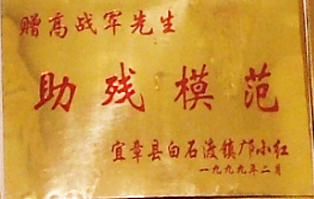 赠高战军先生
助残模范
宜章县白石渡镇邝小红
一九九九年二月